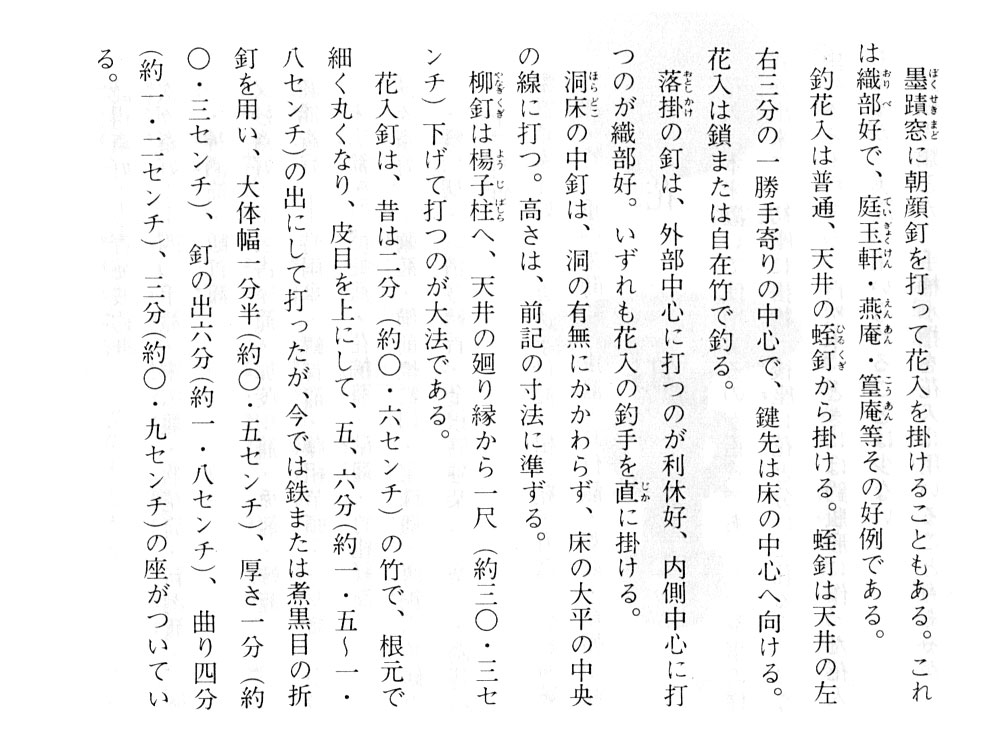 墨蹟窓に朝顔釘を打って花入を掛けることもある。これ
は織部好で、庭玉軒・燕庵・篁庵等その好例である。
釣花入は普通、天井の蛭釘から掛ける。蛭釘は天井の左
右三分の一勝手寄りの中心で、鍵先は床の中心へ向ける。
花入は鎖または自在竹で釣る。
落掛の釘は、外部中心に打つのが利休好、内側中心に打
つのが織部好。いずれも花入の釣手を直に掛ける。
洞床の中釘は、洞の有無にかかわらず、床の大平の中央
の線に打つ。高さは、前記の寸法に準ずる。
柳釘は楊子柱へ、天井の廻り縁から一尺（約三〇・三セ
ンチ）下げて打つのが大法である。
花入釘は、昔は二分（約〇・六センチ）の竹で、根元で
細く丸くなり、皮目を上にして、五、六分（約一・五〜一・
八センチ）の出にして打ったが、今では鉄または煮黒目の折
釘を用い、大体幅一分半（約〇・五センチ）、厚さ一分（約
〇・三センチ）、釘の出六分（約一・八センチ）、曲り四分
（約一・二センチ）、三分（約〇・九センチ）の座がついてい
る。